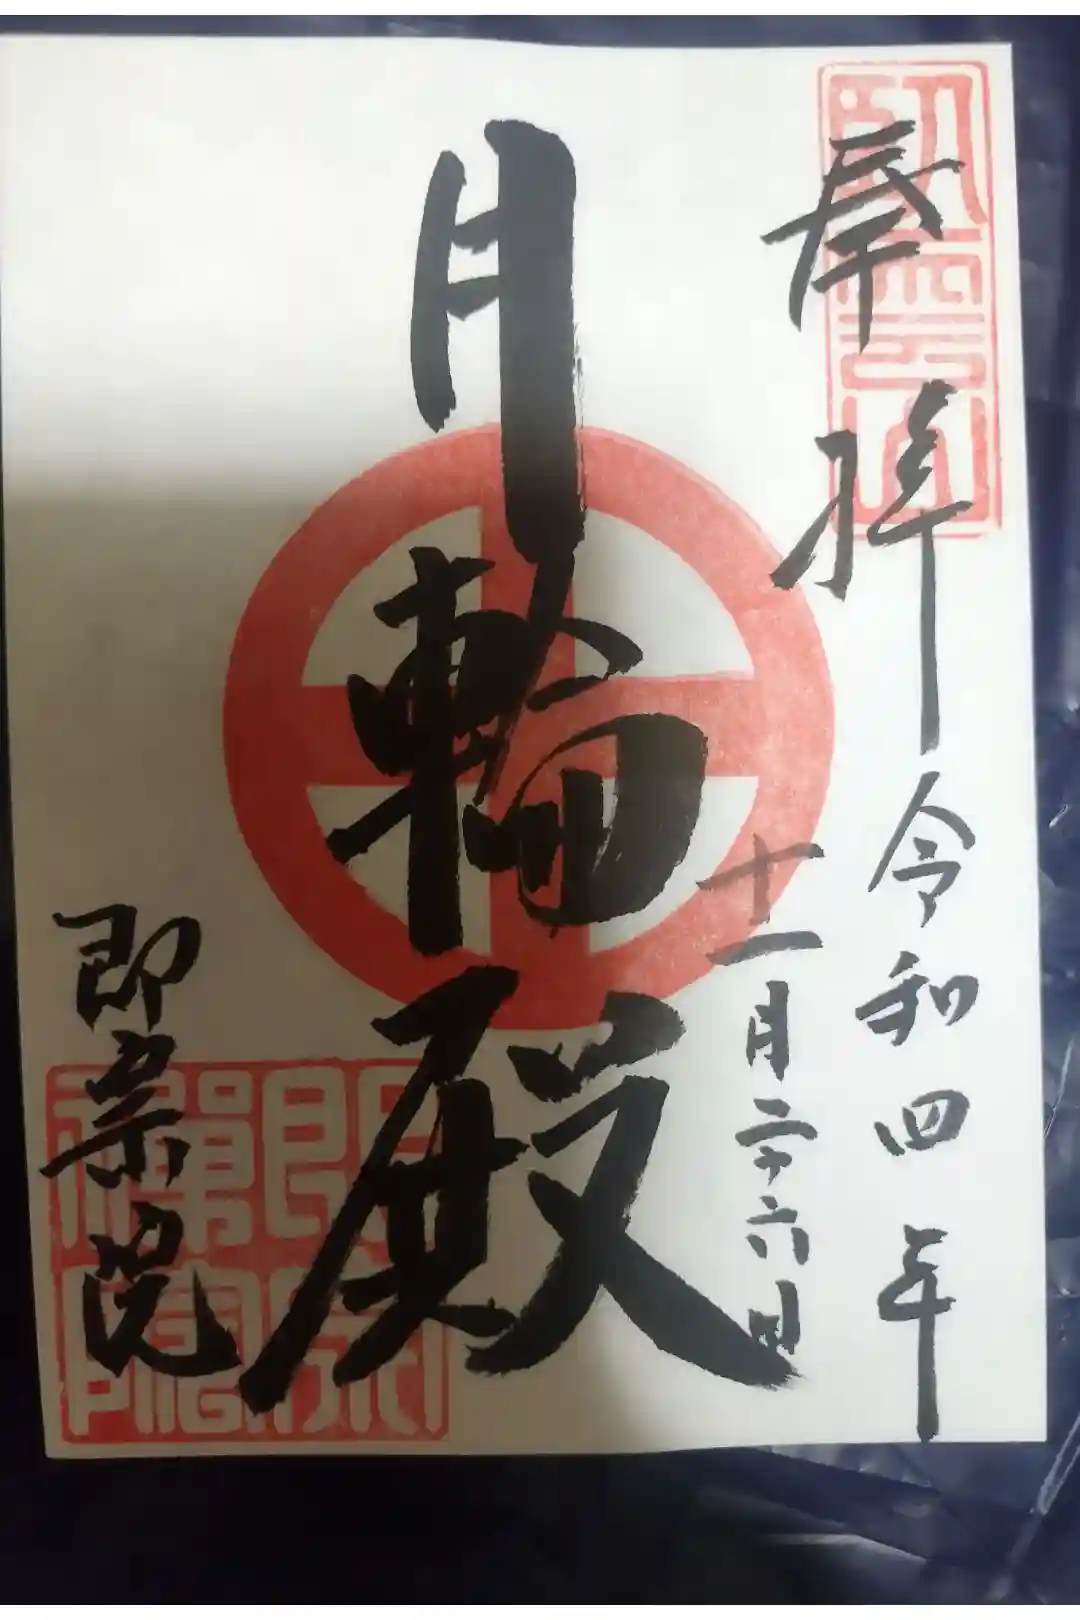 奉拝 令和四年
十一月二十六日
月輪殿
即宗院